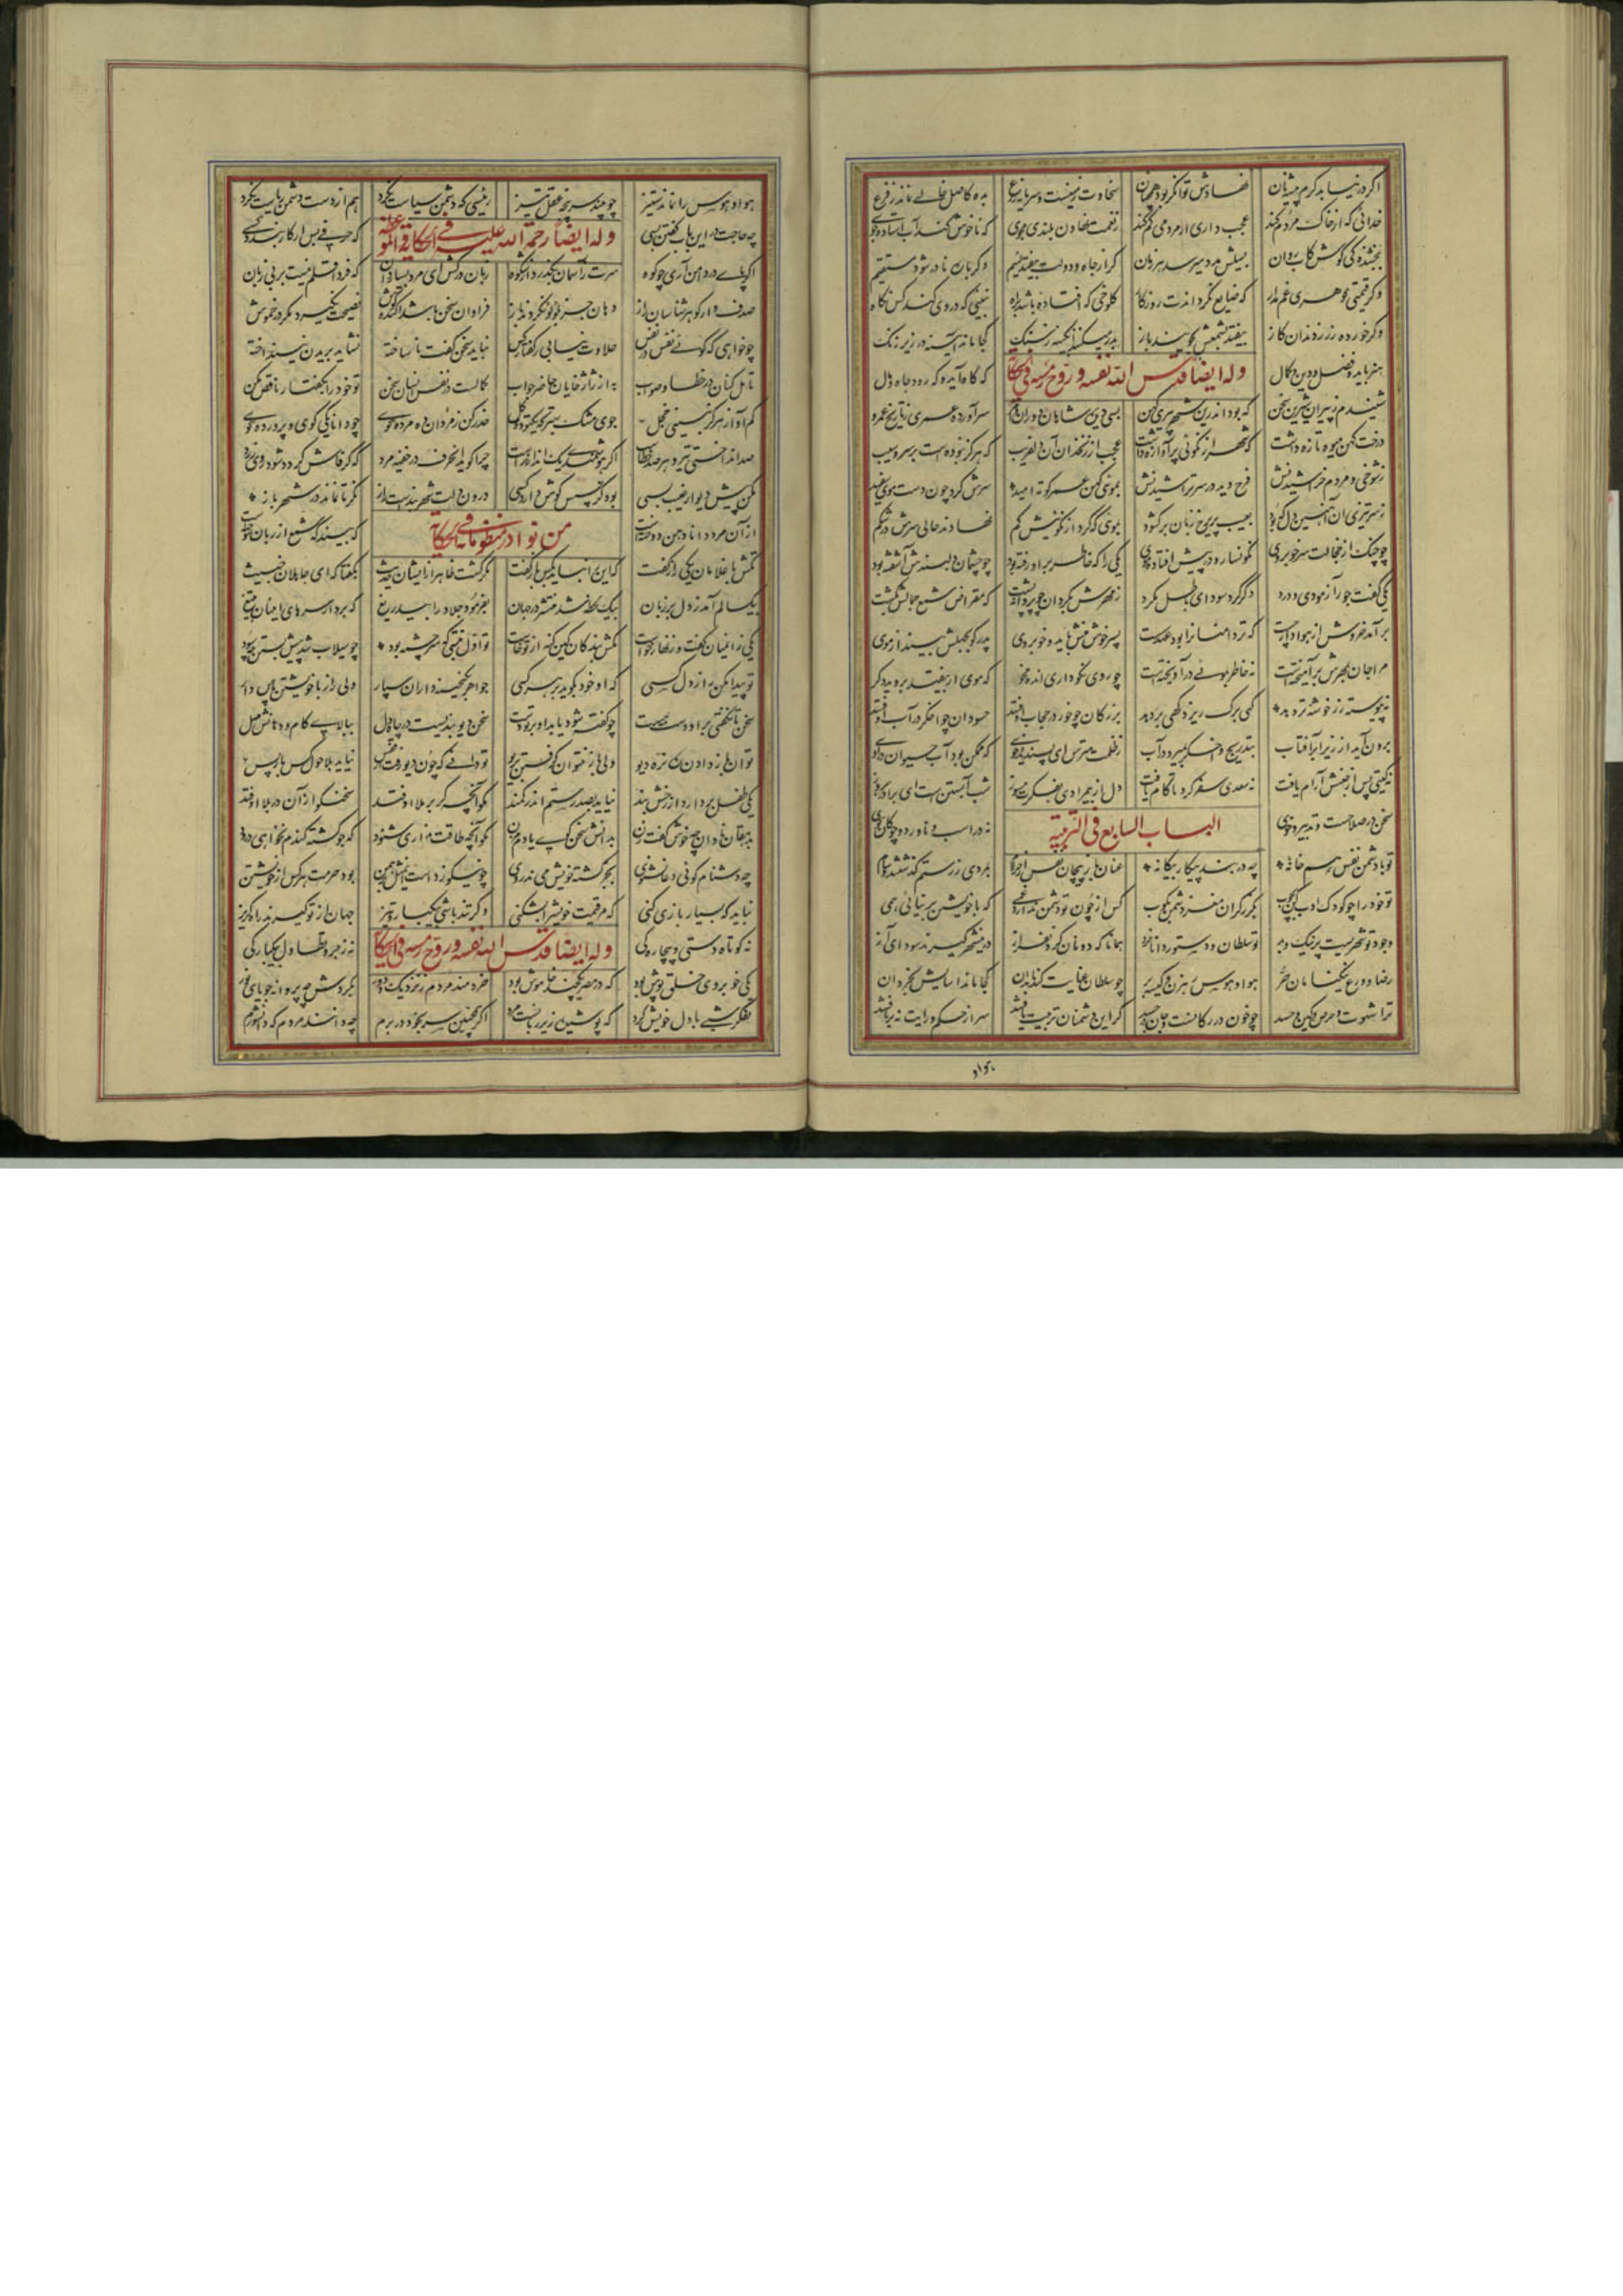 اگر در نیابد کرم پیشه نان نهادش توانگر بود همچنان سخاوت زمینست و سرمایه زرع بده کاصل خالی نماند ز فرع
خدائی که از خاک مردم کند عجب دارم ار مردمی گم کند ز نعمت نهادن بلندی مجوی که ناخوش کند آب استاده بوی
ببخشندگی کوش کاب روان بسیلش مدد میرسد هر زمان گر از جاه و دولت بیفتد لئیم دگر باره نادر شود مستقیم
وگر قیمتی گوهری غم مدار که ضایع نگرداندت روزگار کلوخی که افتاده باشد براه نبینی که در وی کند کس نگاه
وگر خورده زر ز دندان گاز بیفتد بشمعش بجویند باز بدر میکنند آبگینه ز سنگ کجا ماند آئینه در زیر زنگ
هنر باید و فضل و دین و کمال وله ایضا قدس الله نفسه و روح رمسه فی الحکایة که گاه آید و گه رود جاه و مال
شنیدم ز پیران شیرین سخن که بود اندرین شهر پیری کهن بسی دیده شاهان و دوران و امر سر آورده عمری ز تاریخ عمرو
درخت کهن میوه تازه داشت که شهر از نکوئی پر آوازه داشت عجب از زنخدان آن دلفریب که هرگز نبوده است بر سرو سیب
ز شوخی و مردم خراشیدنش فرج دید در سر تراشیدنش بموسی کهن عمر کوته امید سرش کرد چون دست موسی سفید
ز سر تیزی آن آهنین دل که بود بعیب پری رخ زبان برگشود بموئی که کرد از نکوئیش کم نهادند حالی سرش در شکم
چو چنگ از خجالت سر خوبروی نگونسار و در پیش افتاده موی یکی را که خاطر بر او رفته بود چو چشمان دلبندش آشفته بود
یکی گفت جور آزمودی و درد دگر گرد سودای باطل مگرد ز مهرش بگردان چو پروانه پشت که مقراض شمع جمالش بکشت
بر آمد خروش از هوادار چست که تر دامنان را بود عهد سست پسر خوش منش باید و خوبروی پدر گو بجهلش بینداز موی
مرا جان بمهرش بر آمیخته است نه خاطر بموئی در آویخته است چو روی نکو داری انده مخور که موی ار بیفتد بروید دگر
نه پیوسته رز خوشه تر دهد گهی برگ ریزد گهی بر دهد بزرگان چو خور در حجاب اوفتند حسودان چو اخگر در آب اوفتند
برون آید از زیر ابر آفتاب بتدریج و اخگر بمیرد در آب ز ظلمت مترس ای پسندیده دوست که ممکن بود آب حیوان در اوست
نه گیتی پس از جنبش آرام یافت نه سعدی سفر کرد تا کام یافت دل از بیمرادی بفکرت مسوز شب آبستن است ای برادر بروز
سخن در صلاحست و تدبیر و خوی الباب السابع فی التربیة نه در اسب و ناورد و چوگان و گوی
تو با دشمن نفس هم خانه چه در بند پیکار بیگانه عنان باز پیچان نفس از حرام بمردی ز رستم گذشتند و سام
تو خود را چو کودک ادب کن بچوب بگرز گران مغز دشمن مکوب کس از چون تو دشمن ندارد غمی که با خویشتن بر نیائی همی
وجود تو شهریست پر نیک و بد تو سلطان و دستور دانا خرد همانا که دونان گردن فراز درین شهر گیرند سودای آز
رضا و ورع نیکنامان حر هوا و هوس رهزن و کیسه بر چو سلطان عنایت کند با بدان کجا ماند آسایش بخردان
ترا شهوت و حرص و کین و حسد چو خون در رگانست و جان در جسد گر این دشمنان تربیت یافتند سر از حکم و رای تو برتافتند
هوا و
هوا و هوس را نماند ستیز چو بینند سر پنجه عقل تیز رئیسی که دشمن سیاست نکرد هم از دست دشمن ریاست نکرد
چه حاجت در این باب گفتن بسی وله ایضا رحمة الله علیه فی الحکایة و الموعظه که حرفی بس ار کار بندد کسی
اگر پای در دامن آری چو کوه سرت ز آسمان بگذرد از شکوه زبان در کش ای مرد بسیار دان که فردا قلم نیست بر بی زبان
صدف وار گوهر شناسان راز دهان جز بلؤلؤ نکردند باز فراوان سخن باشد آکنده گوش نصیحت نگیرد مگر در خموش
چو خواهی که گوئی نفس در نفس حلاوت نیابی ز گفتار کس نباید سخن گفت ناساخته نشاید بریدن نینداخته
تامل کنان در خطا و صواب به از ژاژ خایان حاضر جواب کمالست در نفس انسان سخن تو خود را بگفتار ناقص مکن
کم آواز هرگز نبینی خجل جوی مشک بهتر که یک توده گل حذر کن ز نادان ده مرده گوی چو دانا یکی گوی و پرورده گوی
صد انداختی تیر و هر صد خطاست اگر هوشمندی یک انداز و راست چرا گوید آن حرف در خفیه مرد که گر فاش گردد شود روی زرد
مکن پیش دیوار غیبت بسی بود کز پسش گوش دارد کسی درون دلت شهر بند است راز نگر تا نماند در شهر باز
از آن مرد دانا دهن دوخت است من نوادر منظوماته فی الحکایة که بیند که شمع از زبان سوخت است
تکش با غلامان یکی راز گفت که این را نباید بکس باز گفت بیکسال آمد ز دل بر زبان بیک لحظه شد منتشر در جهان
بفرمود جلاد را بیدریغ که بردار سرهای اینان بتیغ
یکی زانمیان گفت و زنهار خواست مکش بندگان کین گنه از تو خاست تو اول نبستی که سرچشمه بود چو سیلاب شد پیش بستن چه سود
تو پیدا مکن راز دل بر کسی که او خود بگوید بر هر کسی جواهر بگنجینه داران سپار ولی راز با خویشتن پاس دار
سخن تا نگفتی بر او دست هست چو گفته شود یابد او بر تو دست سخن دیو بندیست در چاه دل ببالای کام و دهانش مهل
توان باز دادن ره نره دیو ولی باز نتوان گرفتن بریو تو دانی که چون دیو رفت از قفس نیاید بلاحول کس باز پس
یکی طفل بردارد از رخش بند نیاید بصد رستم اندر کمند مگو آنچه گر بر ملا اوفتد سخنگو از آن در بلا اوفتد
بدهقان نادان چه خوش گفت زن بدانش سخن گوی یا دم مزن مگو آنچه طاقت نداری شنود که جو کشته گندم نخواهی درود
چه دشنام گوئی دعا نشنوی بجز کشته خویش می ندروی بود حرمت هر کس از خویشتن
نباید که بسیار بازی کنی که مر قیمت خویش را بشکنی وگر تند باشی بیکبار و تیز جهان از تو گیرند راه گریز
نه کوتاه دستی و بیچارگی وله ایضا قدس الله نفسه و روح رمسه فی الحکایة نه زجر و تطاول بیکبارگی
یکی خوبروی خلق پوش بود که در مصر یکچند خاموش بود خردمند مردم ز نزدیک و دور بگردش چو پروانه جویای نور
تفکر شبی با دل خویش کرد که پوشیده زیر زبانست مرد اگر همچنین سر بخود در برم چه دانند مردم که دانشورم